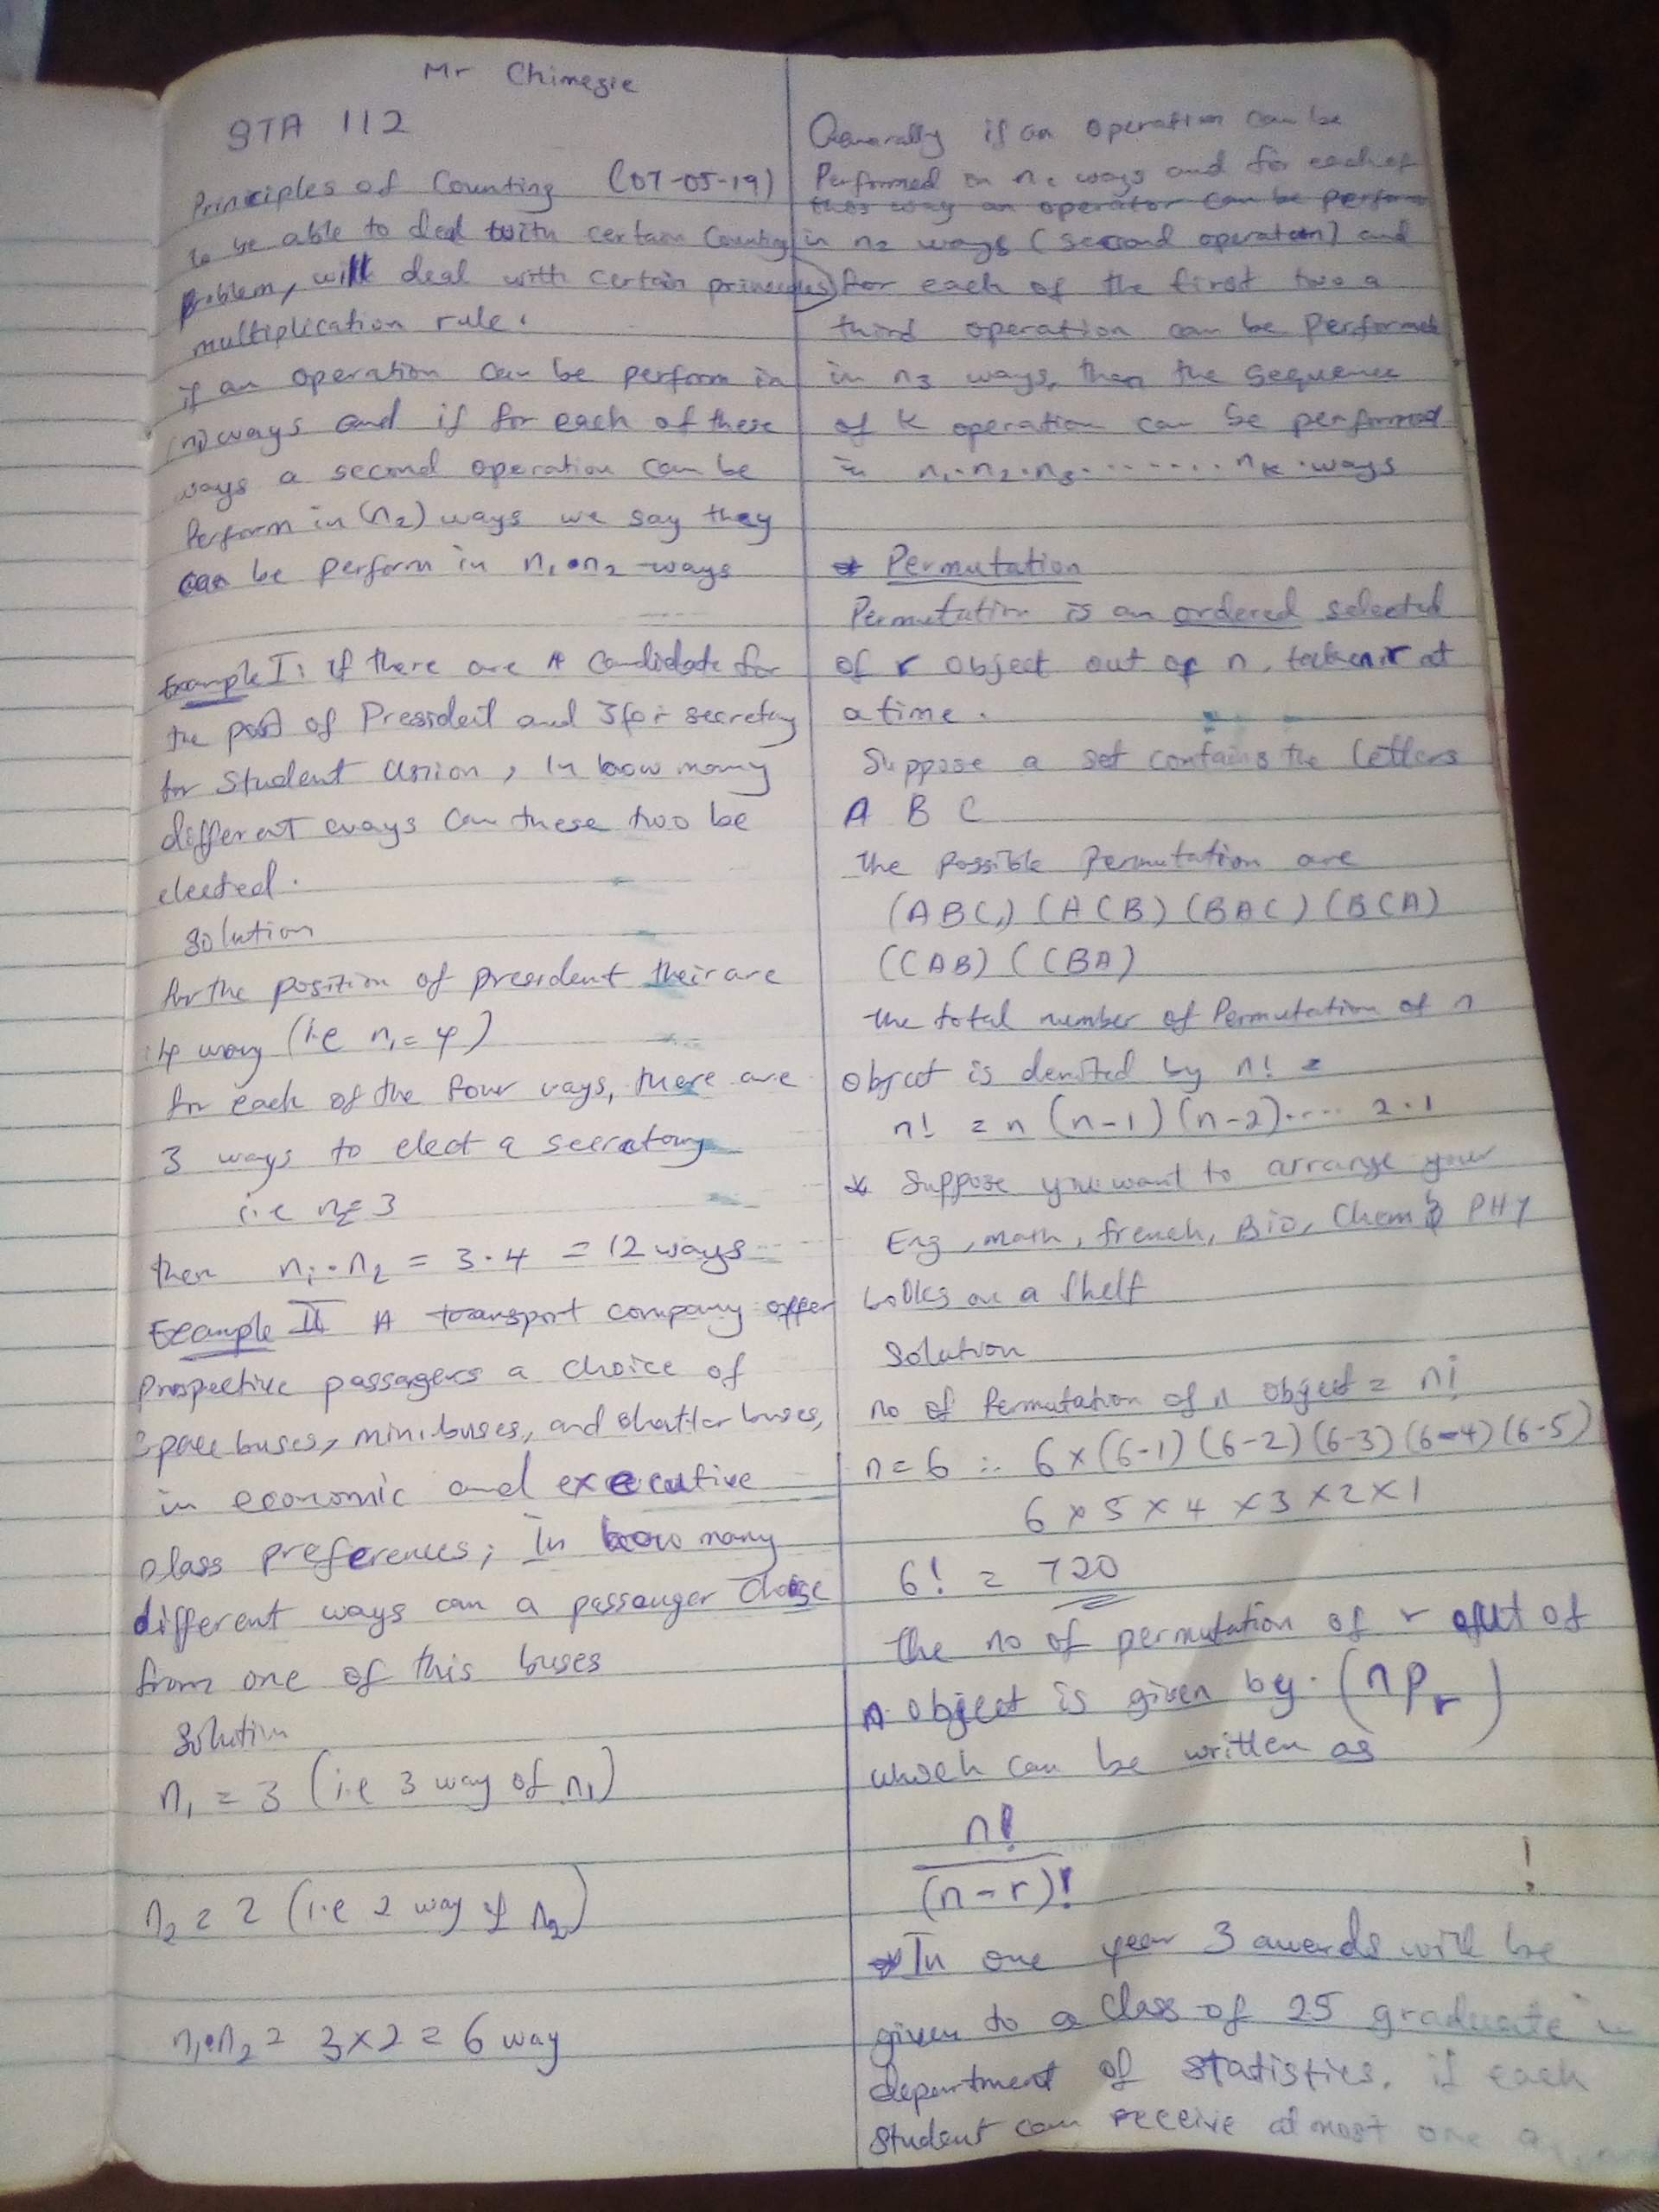 Mr Chimezie
STA 112
Principles of Counting (07-05-19)
to be able to deal with certain Counting
problem, will deal with certain principles)
multiplication rule.
if an operation can be perform in
(n1) ways and if for each of these
ways a second operation can be
Perform in (n2) ways we say they
can be perform in n1 • n2 ways
Example I: if there are 4 Candidate for
the post of President and 3 for secretary
for Student Union, In how many
different ways can these two be
elected.
Solution
for the position of president their are
4 way (i.e n1 = 4)
for each of the four ways, there are
3 ways to elect a secretary
i.e n2 = 3
then n1 • n2 = 3 · 4 = 12 ways
Example II A transport company offer
Prospective passagers a choice of
space buses, minibuses, and shattler buses,
in economic and executive
class preferences; In how many
different ways can a passanger choise
from one of this buses
Solution
n1 = 3 (i.e 3 way of n1)
n2 = 2 (i.e 2 way of n2)
n1•n2 = 3 x 2 = 6 way
Generally if an operation can be
Performed in n1 ways and for each of
this way an operator can be perform
in n2 ways (second operation) and
for each of the first two a
third operation can be Performed
in n3 ways, then the sequence
of K operation can be performed
in n1 . n2 . n3 . . . . . . . nK . ways
* Permutation
Permutation is an ordered selected
of r object out of n, taken r at
a time.
Suppose a set contains the letters
A B C
the possible Permutation are
(ABC,) (ACB) (BAC) (BCA)
(CAB) (CBA)
the total number of Permutation of n
object is denited by n! =
n! = n (n-1) (n-2) .... 2 . 1
* Suppose you want to arrange your
Eng, math, french, Bio, Chem & PHY
books on a shelf
Solution
no of Permutation of n object = n!
n = 6 ∴ 6 x (6-1) (6-2) (6-3) (6-4) (6-5)
6 x 5 x 4 x 3 x 2 x 1
6! = 720
the no of permutation of r out of
n object is given by. (nPr)
which can be written as
n!
(n-r)!
!
* In one year 3 awards will be
given to a class of 25 graduate in
department of statistics. if each
student can receive at most one